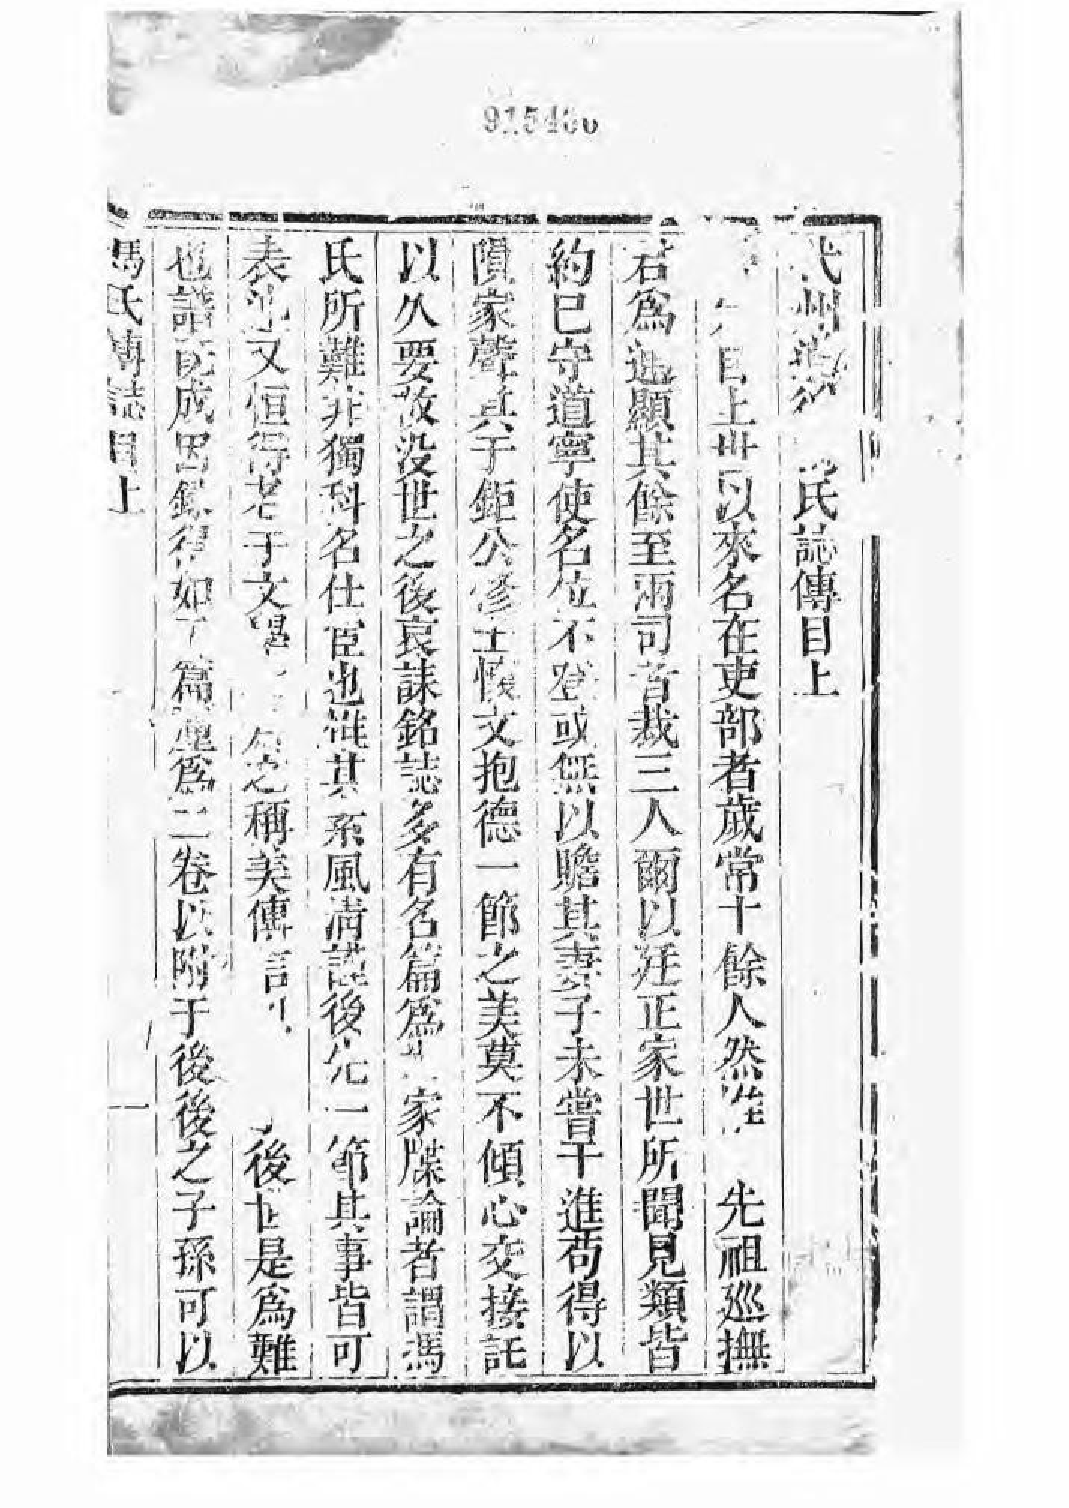 915436
代州馮氏誌傳目上
自上世以來名在吏部者歲常十餘人然惟先祖巡撫
君為過顯其餘至兩司者裁三人爾以廷正家世所聞見類皆
約已守道寧使名位不登或無以贍其妻子未嘗干進苟得以
隕家聲其于鉅公修士懷文抱德一節之美莫不傾心交接託
以久要故没世之後哀誄銘誌多有名篇為家牒論者謂馮
氏所難非獨科名仕宦也惟其素風清謹後先一節其事皆可
表也又恒得老于文學之稱美傳後世是為難
也譜既成因錄得如干篇釐為二卷以附于後後之子孫可以
馮氏傳誌目上
一